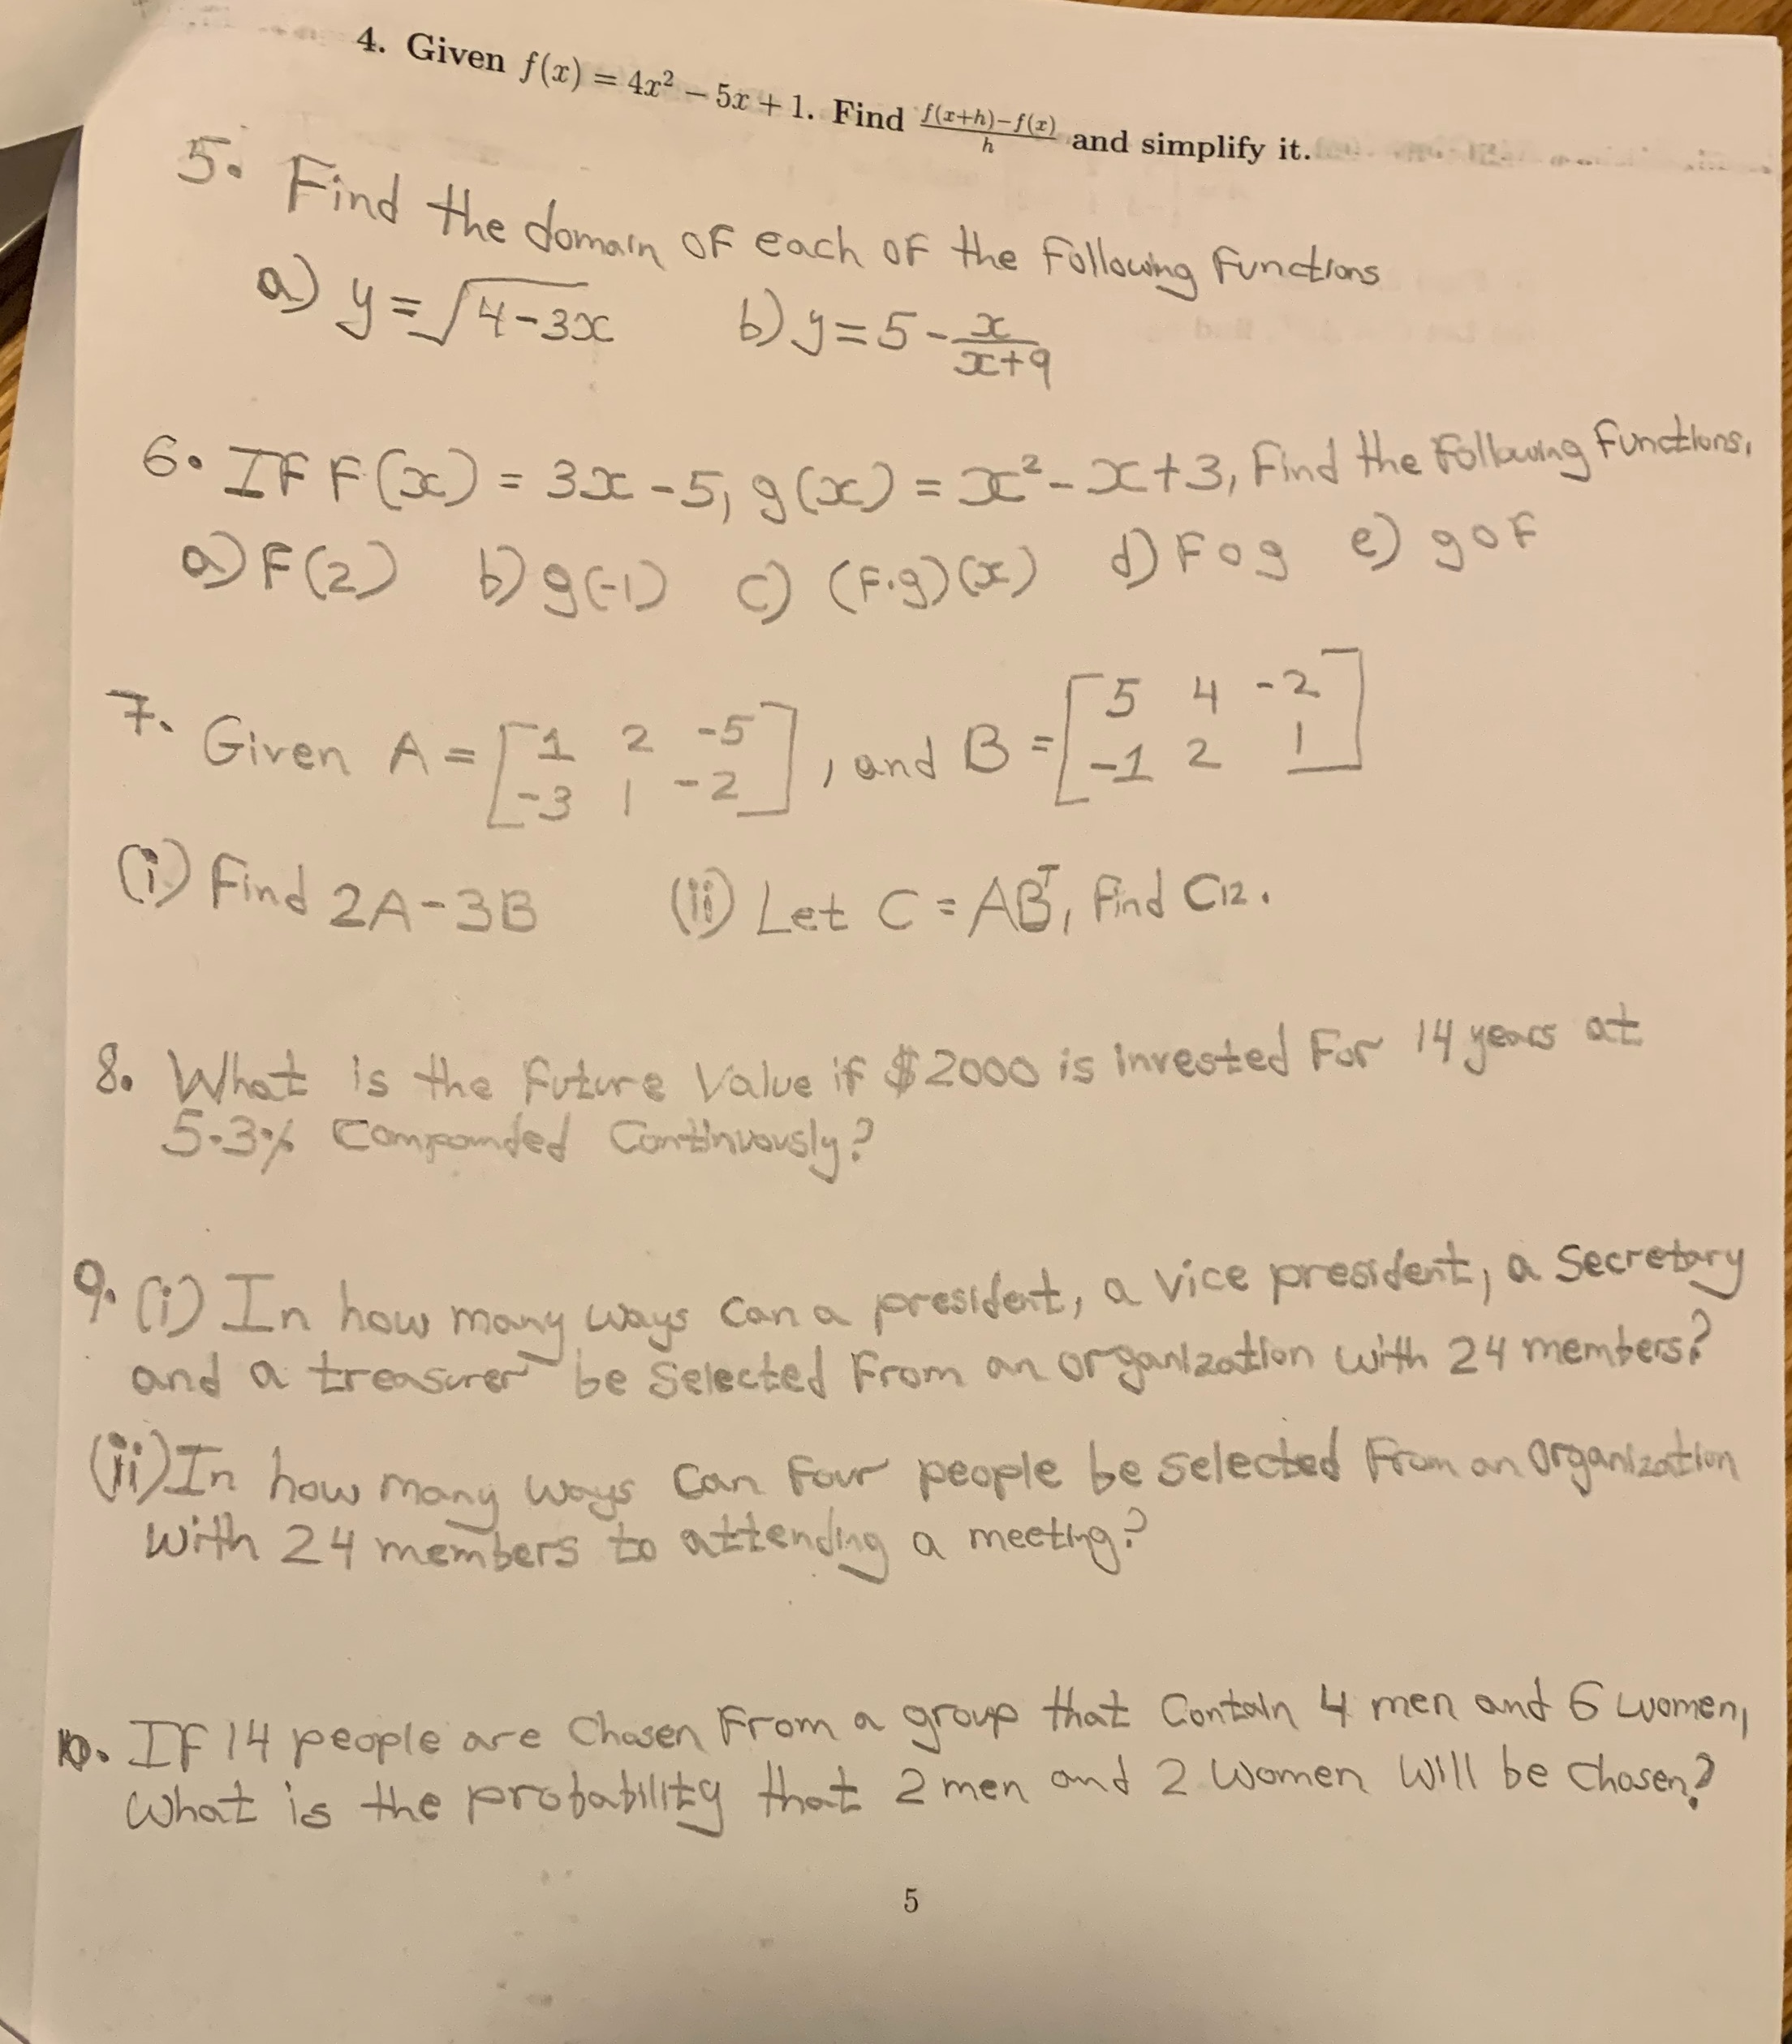 4. Given f(x) = 4x² − 5x + 1. Find \frac{f(x+h)−f(x)}{h} and simplify it.
5. Find the domain of each of the following functions
a) y = √(4-3x)  b) y = 5 - \frac{x}{x+9}
6. If F(x) = 3x - 5, g(x) = x² - x + 3, Find the following functions.
a) F(2)  b) g(-1)  c) (F.g)(x)  d) F o g  e) g o F
7. Given A = [1 2 -5; -3 1 -2], and B = [5 4 -2; -1 2 1]
(i) Find 2A - 3B  (ii) Let C = ABᵀ, find C12.
8. What is the future value if $2000 is invested for 14 years at
5.3% compounded continuously?
9. (i) In how many ways can a president, a vice president, a secretary
and a treasurer be selected from an organization with 24 members?
(ii) In how many ways can four people be selected from an organization
with 24 members to attending a meeting?
10. If 14 people are chosen from a group that contain 4 men and 6 women,
what is the probability that 2 men and 2 women will be chosen?
5